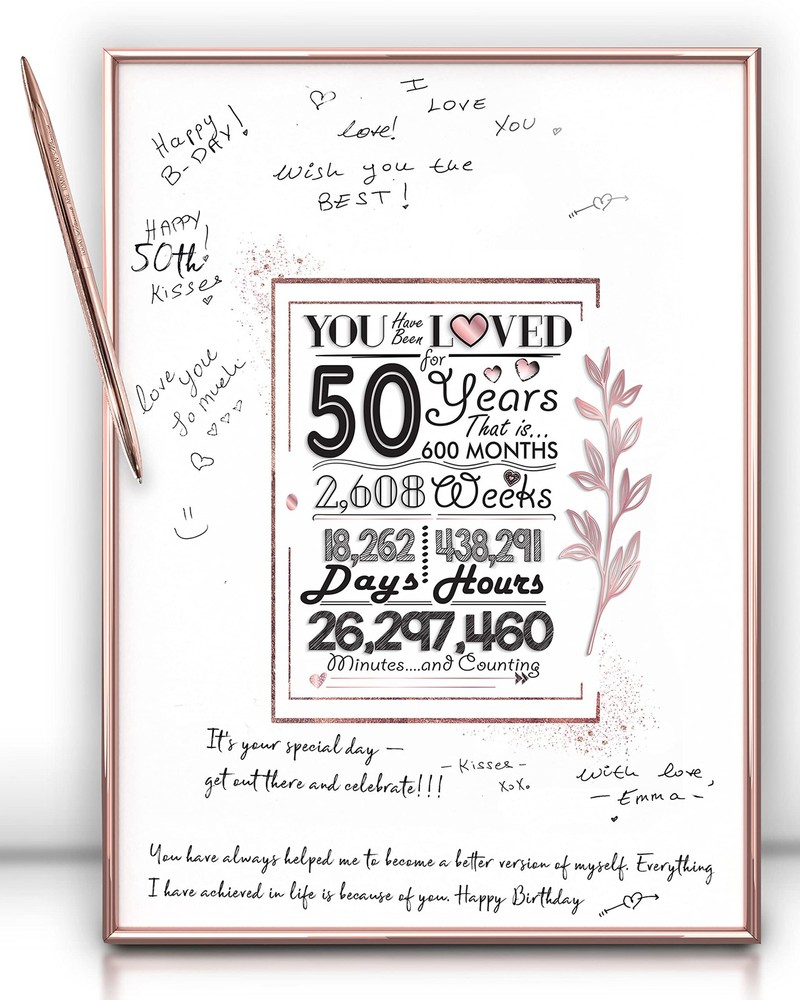 I
LOVE
YOU
love!
Happy
B-DAY!
Wish you the
BEST!
HAPPY!
50th
Kisses
love you
so much
YOU Have Been LOVED
for
50 Years
That is...
600 MONTHS
2,608 Weeks
18,262 438,291
Days Hours
26,297,460
Minutes....and Counting
It's your special day –
get out there and celebrate!!!
- Kisses -
xoxo
With love,
- Emma -
You have always helped me to become a better version of myself. Everything
I have achieved in life is because of you. Happy Birthday